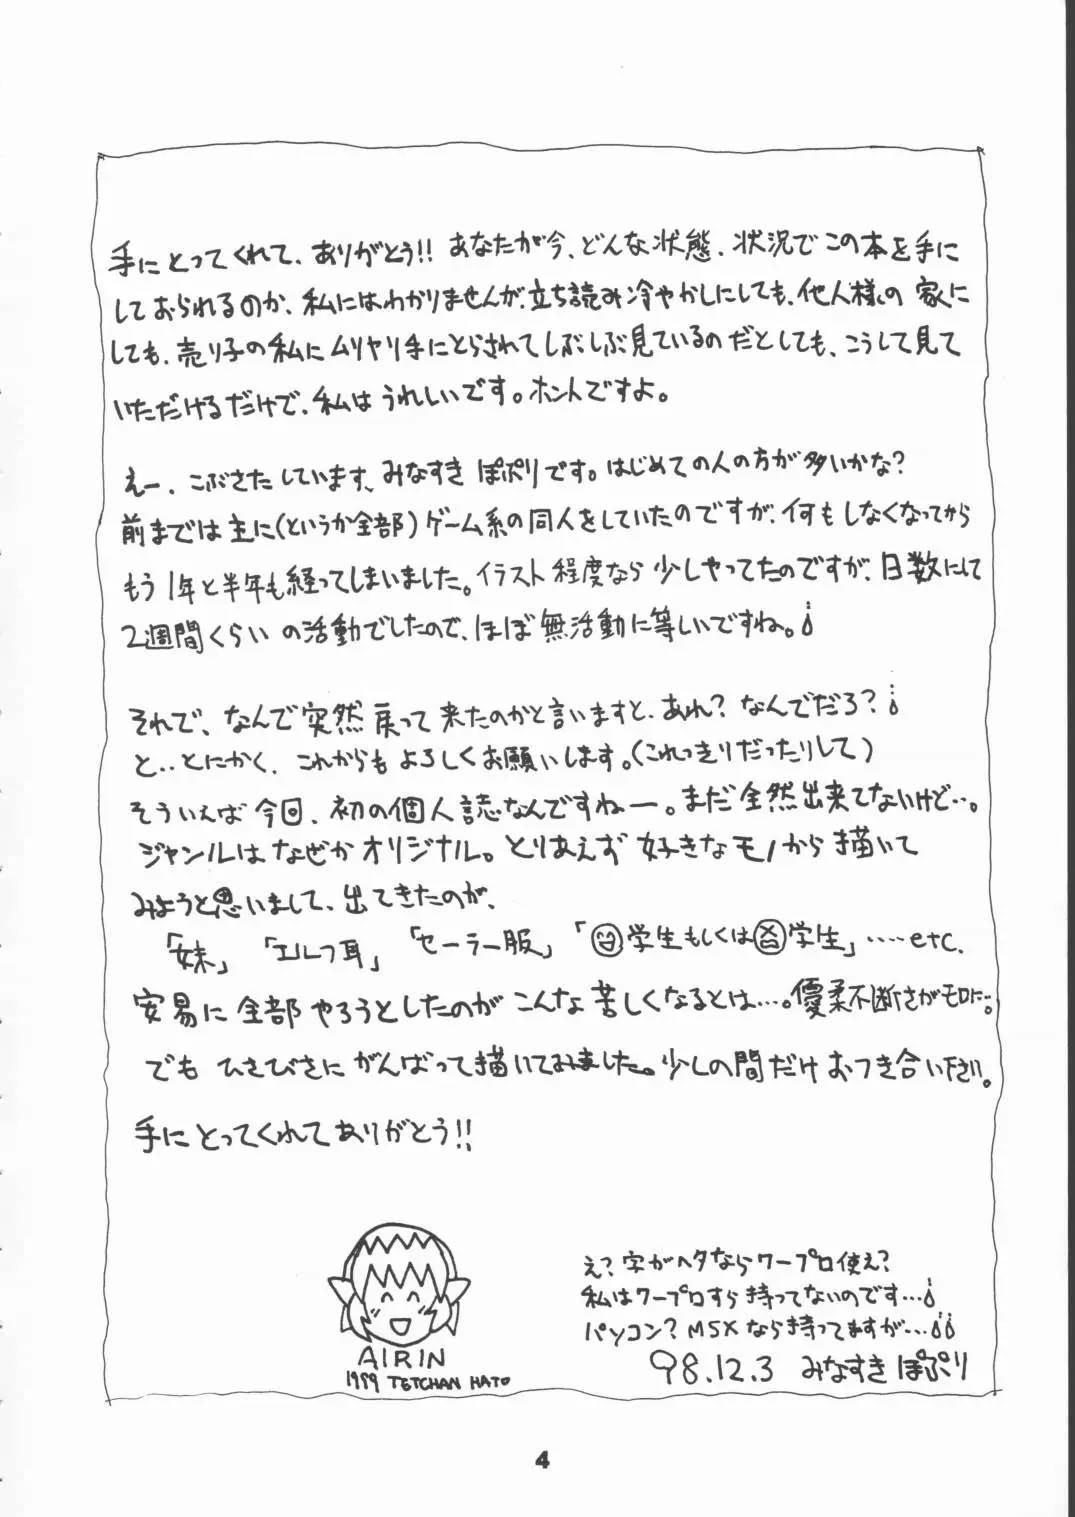 手にとってくれて、ありがとう!! あなたが今、どんな状態、状況でこの本を手に
しておられるのか、私にはわかりませんが、立ち読み冷やかしにしても、他人様の家に
しても、売り子の私にムリヤリ手にとらされてしぶしぶ見ているのだとしても、こうして見て
いただけるだけで、私はうれしいです。ホントですよ。
えー、こぶさたしています、みなすきぽぷりです。はじめての人の方が多いかな?
前までは主に(というか全部)ゲーム系の同人をしていたのですが、何もしなくなってから
もう1年と半年も経ってしまいました。イラスト程度なら少しやってたのですが、日数にして
2週間くらいの活動でしたので、ほぼ無活動に等しいですね。
それで、なんで突然戻って来たのかと言いますと、あれ?なんでだろ?
と‥とにかく、これからもよろしくお願いします。(これっきりだったりして)
そういえば今回、初の個人誌なんですねー。まだ全然出来てないけど…。
ジャンルはなぜかオリジナル。とりあえず好きなモノから描いて
みようと思いまして、出てきたのが、
「妹」「エルフ耳」「セーラー服」「学生もしくは学生」‥‥etc.
安易に全部やろうとしたのがこんな苦しくなるとは…。優柔不断さがモロに。
でもひさびさにがんばって描いてみました。少しの間だけおつき合い下さい。
手にとってくれてありがとう!!
え?字がヘタならワープロ使え?
私はワープロすら持ってないのです…
パソコン?MSXなら持ってますが…
98.12.3 みなすきぽぷり
AIRIN
1999 TETCHAN HATO
4